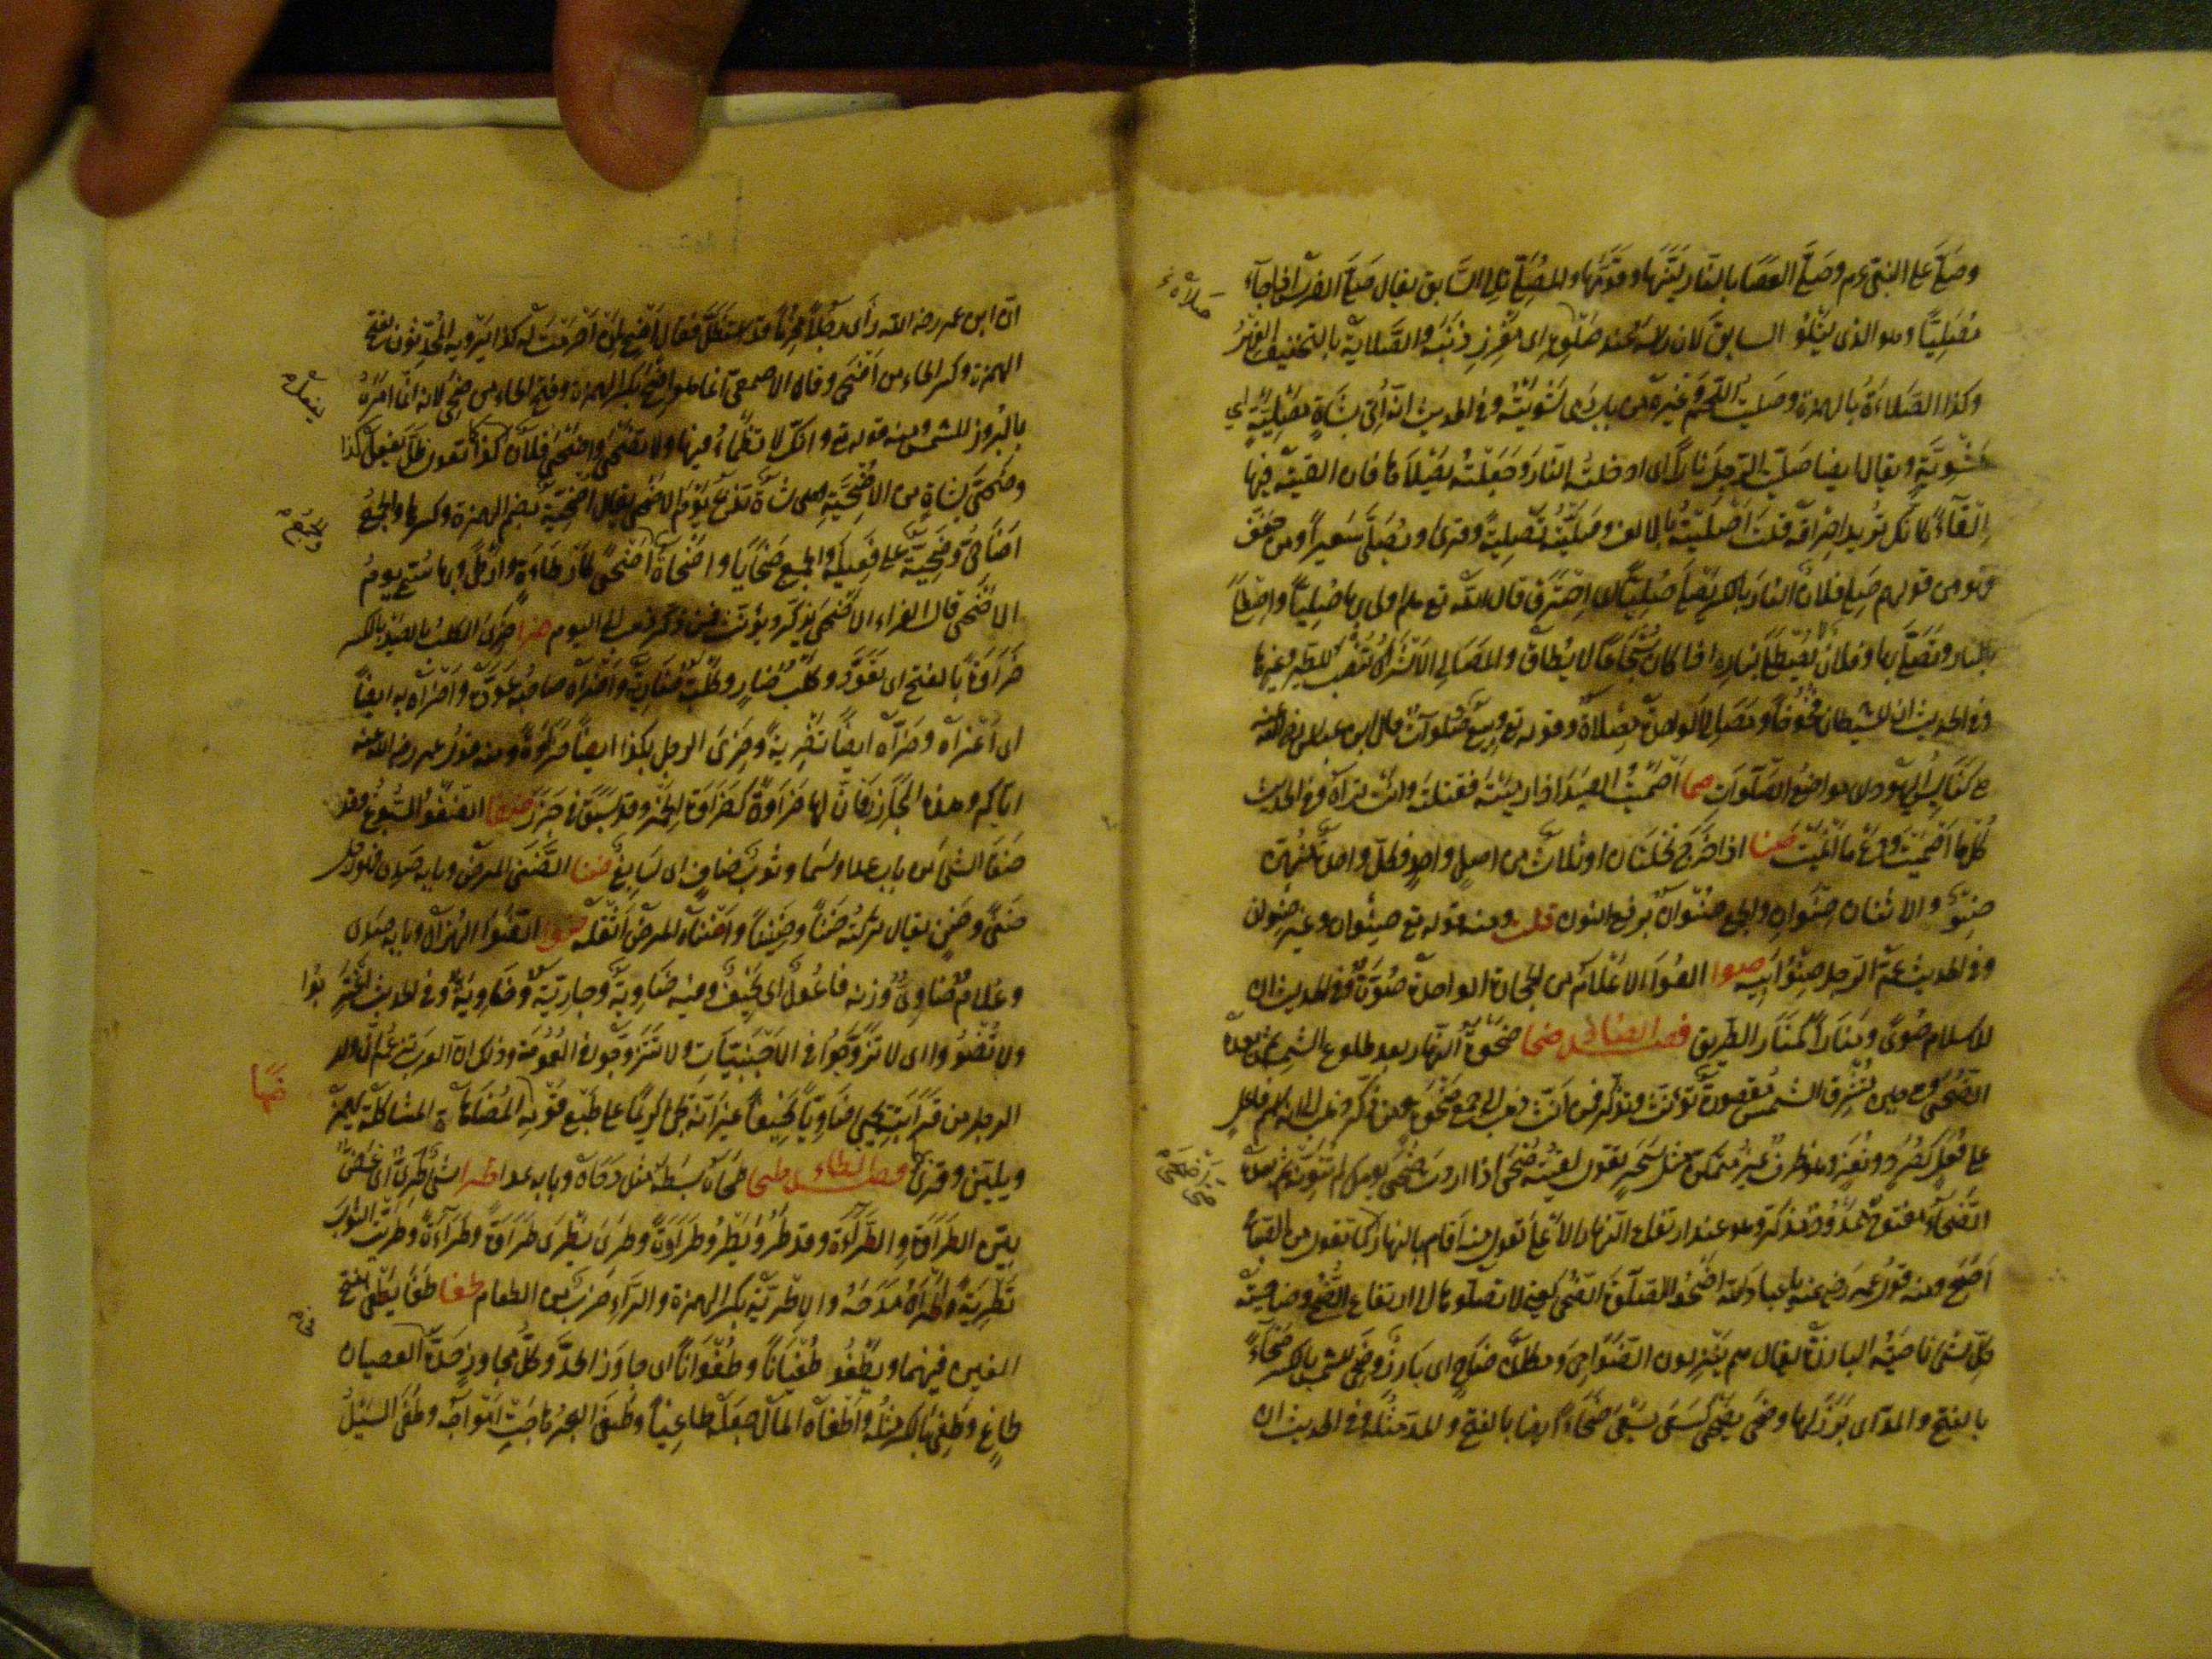 وصَلَّى على النبيّ عم وصَلَّى العَصَا بالنّار لَيَّنَها وقَوَّمَها والمُصَلِّي تالي السَّابق يقال صَلَّى الفرس اذا جاء
مُصَلِّيًا وهو الذى يَتْلُو السابق لان راسه عند صَلَاه اى مَغْرِز ذَنَبه والصَّلاية بالتخفيف الفِهْرُ
وكذا الصَّلاءَةُ بالهمزة وصَلَيْتُ اللّحمَ وغيره من باب رَمى شَوَيْتُه وفى الحديث انه اُتِىَ بشاةٍ مَصْلِيَّةٍ اى
مَشْوِيَّةٍ ويقال ايضا صَلَيْتُ الرّجلَ نارًا اى ادخلتُه النّارَ وجَعَلْتُه يَصْلَاها فان القيتَه فيها
اِلْقَآءً كانّك تُريد احراقه قلت اَصْلَيْتُهُ بالالف وصَلَّيْتُه تَصْلِيَةً وقرئ ويُصَلَّى سَعيرًا ومن خفّف
فهو من قولهم صَلِىَ فلانٌ النارَ بالكسر يَصْلَى صُلِيًّا اى احْتَرَق قال الله تع هم اولى بها صُلِيًّا واصْطَلَى
بالنار وتَصَلَّى بها وفلانٌ لا يُصْطَلَى بناره اذا كان شُجاعًا لا يُطاق والمَصَالى الاَشْرَاكُ تُنْصَب للطير وغيرها
وفى الحديث ان للشيطان فُخُوخًا ومَصَالِى الواحدة مِصْلاةٌ وقوله تع وبِيَعٌ وصَلَوَاتٌ قال ابن عباس رضى الله عنه
هى كنايس اليهود اى مواضع الصَّلَوات صما اَصْمَيْتُ الصَّيدَ اذا رميته فقتلته وانت تراه وفى الحديث
كُلْ ما اَصْمَيْتَ ودَعْ ما اَنْمَيْتَ صنا اذا خَرج نَخْلَتان او ثلاث من اصلٍ واحدٍ فكل واحدة منهنّ
صِنْوٌ والاثنان صِنْوانِ والجمع صِنْوانٌ برفع النون قلت ومنه قوله تع صِنْوان وغير صِنْوان
وفى الحديث عَمُّ الرّجل صِنْوُ اَبيه صوا الصُّوَى الاَعْلامُ من الحجارة الواحدة صُوَّةٌ وفى الحديث ان
للاسلام صُوًى ومَنَارًا كمَنَار الطّريق فصل الضاد ضحا ضَحْوَةُ النّهار بعد طلوع الشمس ثم بعده
الضُّحَى وهى حين تُشْرِقُ الشمسُ مقصورةٌ تؤنّث وتذكّر فمن اَنّث ذهب الى جمع ضَحْوَةٍ ومن ذكّر ذهب الى انه اسم
على فُعَلٍ كصُرَدٍ ونُغَرٍ وهو ظرف غيرُ متمكّنٍ مثل سَحَرٍ تقول لقيته ضُحًى اذا اردت ضُحَى يومك لم تُنَوِّنه ثم بعده
الضَّحَاءُ مفتوحٌ ممدودٌ مذكّرٌ وهو عند ارتفاع النّهار الاَعْلى تقول منه اَقام بالنهار كما تقول من الصّباح
اَصْبح ومنه قول عمر رض عنه ياعباد الله اضْحُوا بصَلاة الضُّحى يعنى لا تصلّوها الا الى ارتفاع الضُّحى وضاحيةُ
كلّ شئ ناحيتُه البارزةُ يقال هم يَنْزِلون الضَّوَاحِىَ ومكانٌ ضاحٍ اى بارزٌ وضَحِىَ للشمس بالكسر ضَحَاءً
بالفتح والمدّ اى بَرَزَ لها وضَحَى يَضْحَى كسَعَى يَسْعَى ضَحَاءً ايضا بالفتح والمد مثله وفى الحديث ان
انّ ابن عمر رضى الله رأى رجلًا مُحْرِمًا قد استظلّ فقال اَضْحِ لمن اَحْرَمْتَ له كذا يَرْويه المُحَدِّثون بفتح
الهمزة وكسر الحاء من اَضْحَى وقال الاصمعى انما هو اِضْحَ بكسر الهمزة وفتح الحاء من ضَحِىَ لانه انما اَمَرَهُ
بالبُروز للشمس ومنه قوله تع وانّك لا تظمأ فيها ولا تَضْحَى واَضْحَى فلانٌ يفعل كذا كما تقول ظَلَّ يفعل كذا
وضَحَّى بشاةٍ من الاُضْحِيَّةِ وهى شاةٌ تُذْبَح يَوْمَ الاَضْحى يقال اُضْحِيَّة بضم الهمزة وكسرها والجمعُ
اَضَاحِىُّ وضَحِيَّةٌ على فَعِيلَة والجمع ضَحَايَا واَضْحَاةٌ والجمع اَضْحًى كاَرْطَاةٍ واَرْطًى وبها سُمّى يومُ
الاَضْحَى قال الفراء الاَضْحَى يُذكّر ويؤنّث فمن ذكّر ذهب الى اليوم ضرا ضَرِىَ الكلبُ بالصّيد بالكسر
ضَرَاوَةً بالفتح اى تَعَوَّد وكلبٌ ضارٍ وكلبةٌ ضاريةٌ واَضْرَاه صاحبُه عوّده واَضْرَاه به ايضًا
اى اَغْراه وضَرَّاه ايضًا تَضْرِيةً وضَرِىَ الرجل بكذا ايضًا ضَرَاوَةً ومنه قول عمر رضى الله عنه
اياكم وهذه المجازِرَ فانّ لها ضَرَاوَةً كضَرَاوَة الخمر وقد سبق فى جَزَر ضفا الضَّفْوُ السُّبُوغُ وقد
ضَفَا الشئ من باب عدا وسَما وثوبٌ ضافٍ اى سَابِغٌ ضنا الضَّنَى المرضُ وبابه صَدِى فهو رجل
ضَنًى وضَنٍ يقال تركتُه ضَنًى وضَنِيًا واَضْنَاه المرضُ اَثْقَلَه ضوا الضَّوَى الهُزالُ وبابه صَدِى
وغلامٌ ضاوِىٌّ وزنه فاعُولٌ اى نَحيفٌ وفيه ضَاوِيّةٌ وجاريةٌ ضَاوِيّةٌ وفى الحديث اغْتَرِبُوا
ولا تُضْوُوا اى لا تَزَوَّجُوا فى الاَجْنَبِيّاتِ ولا تتَزوّجوا فى العُمُومة وذلك ان العرب تزعُم انّ ولد
الرجل من قَرَابَتِه يجئ ضَاوِيًّا نَحيفًا غير انه يجئ كريمًا على طَبْع قَوْمِه المُضَاهاة المشاكلة يُهمَز
ويليّن وقرئ فصل الطاء طحا طَحَاه بَسَطَه مثل دَحَاه وبابه عدا طرا شئٌ طَرِىٌّ اى غَضٌّ
بيّن الطَّرَاوَة والطَّرَاءَة وقد طَرُوَ يَطْرُو طَرَاوَةً وطَرِىَ يَطْرَى طَرَاوَةً وطَرَاءَةً وطَرَّيْتُ الثوبَ
تَطْرِيَةً واَطْرَاهُ مَدَحَهُ والاِطْرِيَةُ بكسر الهمزة والراء ضرب من الطعام طغا طَغَا يَطْغَى بفتح
الغين فيهما ويَطْغُو طُغْيَانًا وطُغْوَانًا اى جاوَزَ الحَدَّ وكلُّ مجاوِزٍ حَدَّه فى العصيان
طاغٍ وطَغِىَ بالكسر مثلُه واَطْغَاه المالُ جعَلَه طاغِيًا وطَغَى البحرُ هَاجَتْ اَمْواجُه وطَغَى السَّيْلُ